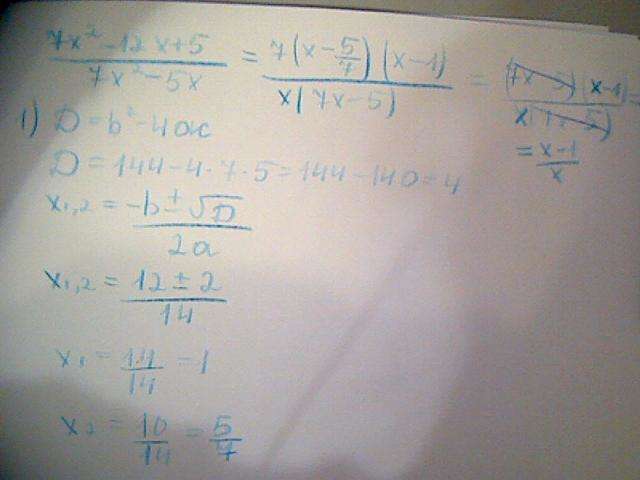 7x² - 12x + 5 / 7x² - 5x = 7(x - 5/7)(x - 1) / x(7x - 5) = (7x - 5)(x - 1) / x(7x - 5) =
= x - 1 / x
1) D = b² - 4ac
D = 144 - 4 · 7 · 5 = 144 - 140 = 4
x₁,₂ = -b ± √D / 2a
x₁,₂ = 12 ± 2 / 14
x₁ = 14/14 = 1
x₂ = 10/14 = 5/7